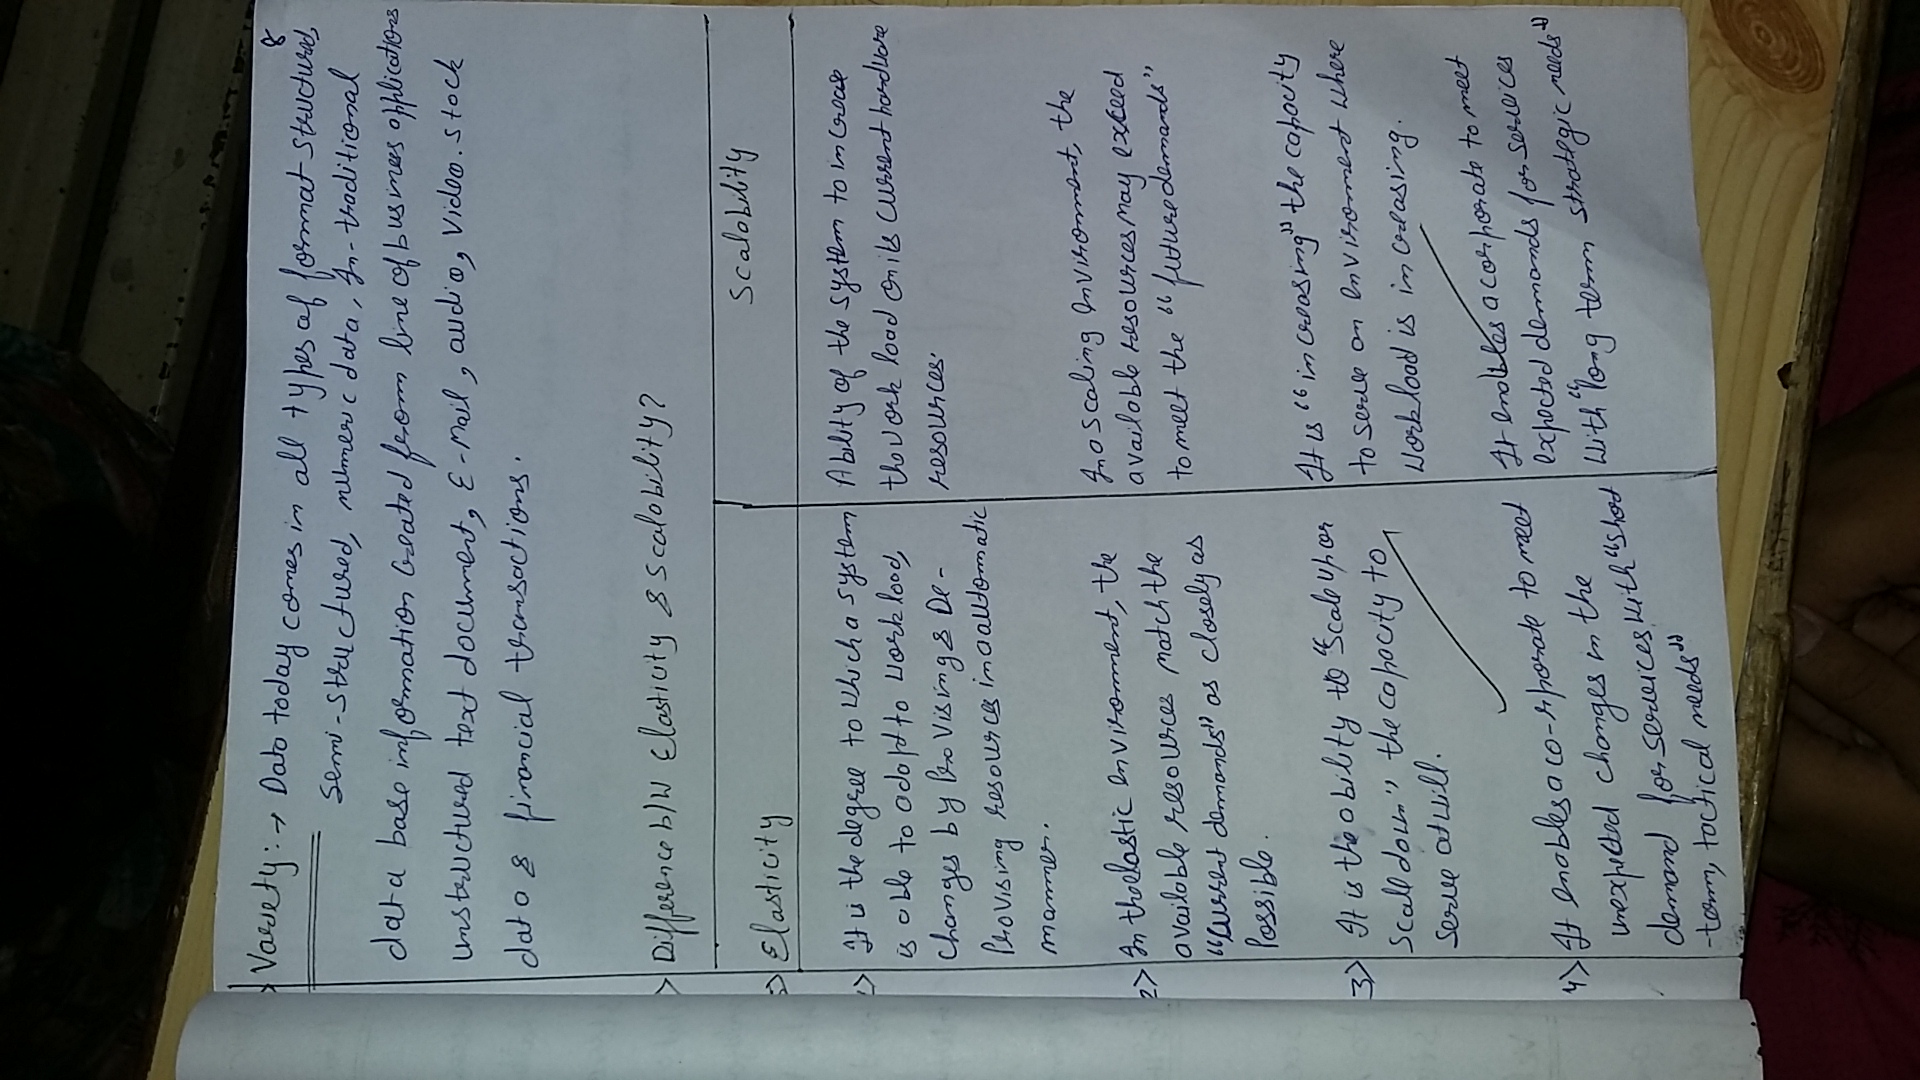 8
Variety :→ Data today comes in all types of format structured,
semi-structured, numeric data, In-traditional
data base information created from line of business applications
unstructured text document, E-mail, audio, Video. stock
data & financial transactions.
> Difference b/w Elasticity & Scalability?
> Elasticity
Scalability
1> It is the degree to which a system
is able to adapt to work load,
changes by Provising & De-
Provising resources in a automatic
manner.
Ability of the system to increase
the work load on its current hardware
resources.
2> In the elastic environment, the
available resources match the
"current demands" as closely as
Possible.
In a scaling environment, the
available resources may exceed
to meet the "future demands"
3> It is the ability to "Scale up or
Scale down" the capacity to
serve at will.
It is "increasing" the capacity
to serve an enviroment where
work load is increasing.
4> It enables a co-rporate to meet
unexpected changes in the
demand for services with "short
-term, tactical needs"
It enables a corporate to meet
expected demands for services
with "long term strategic needs"